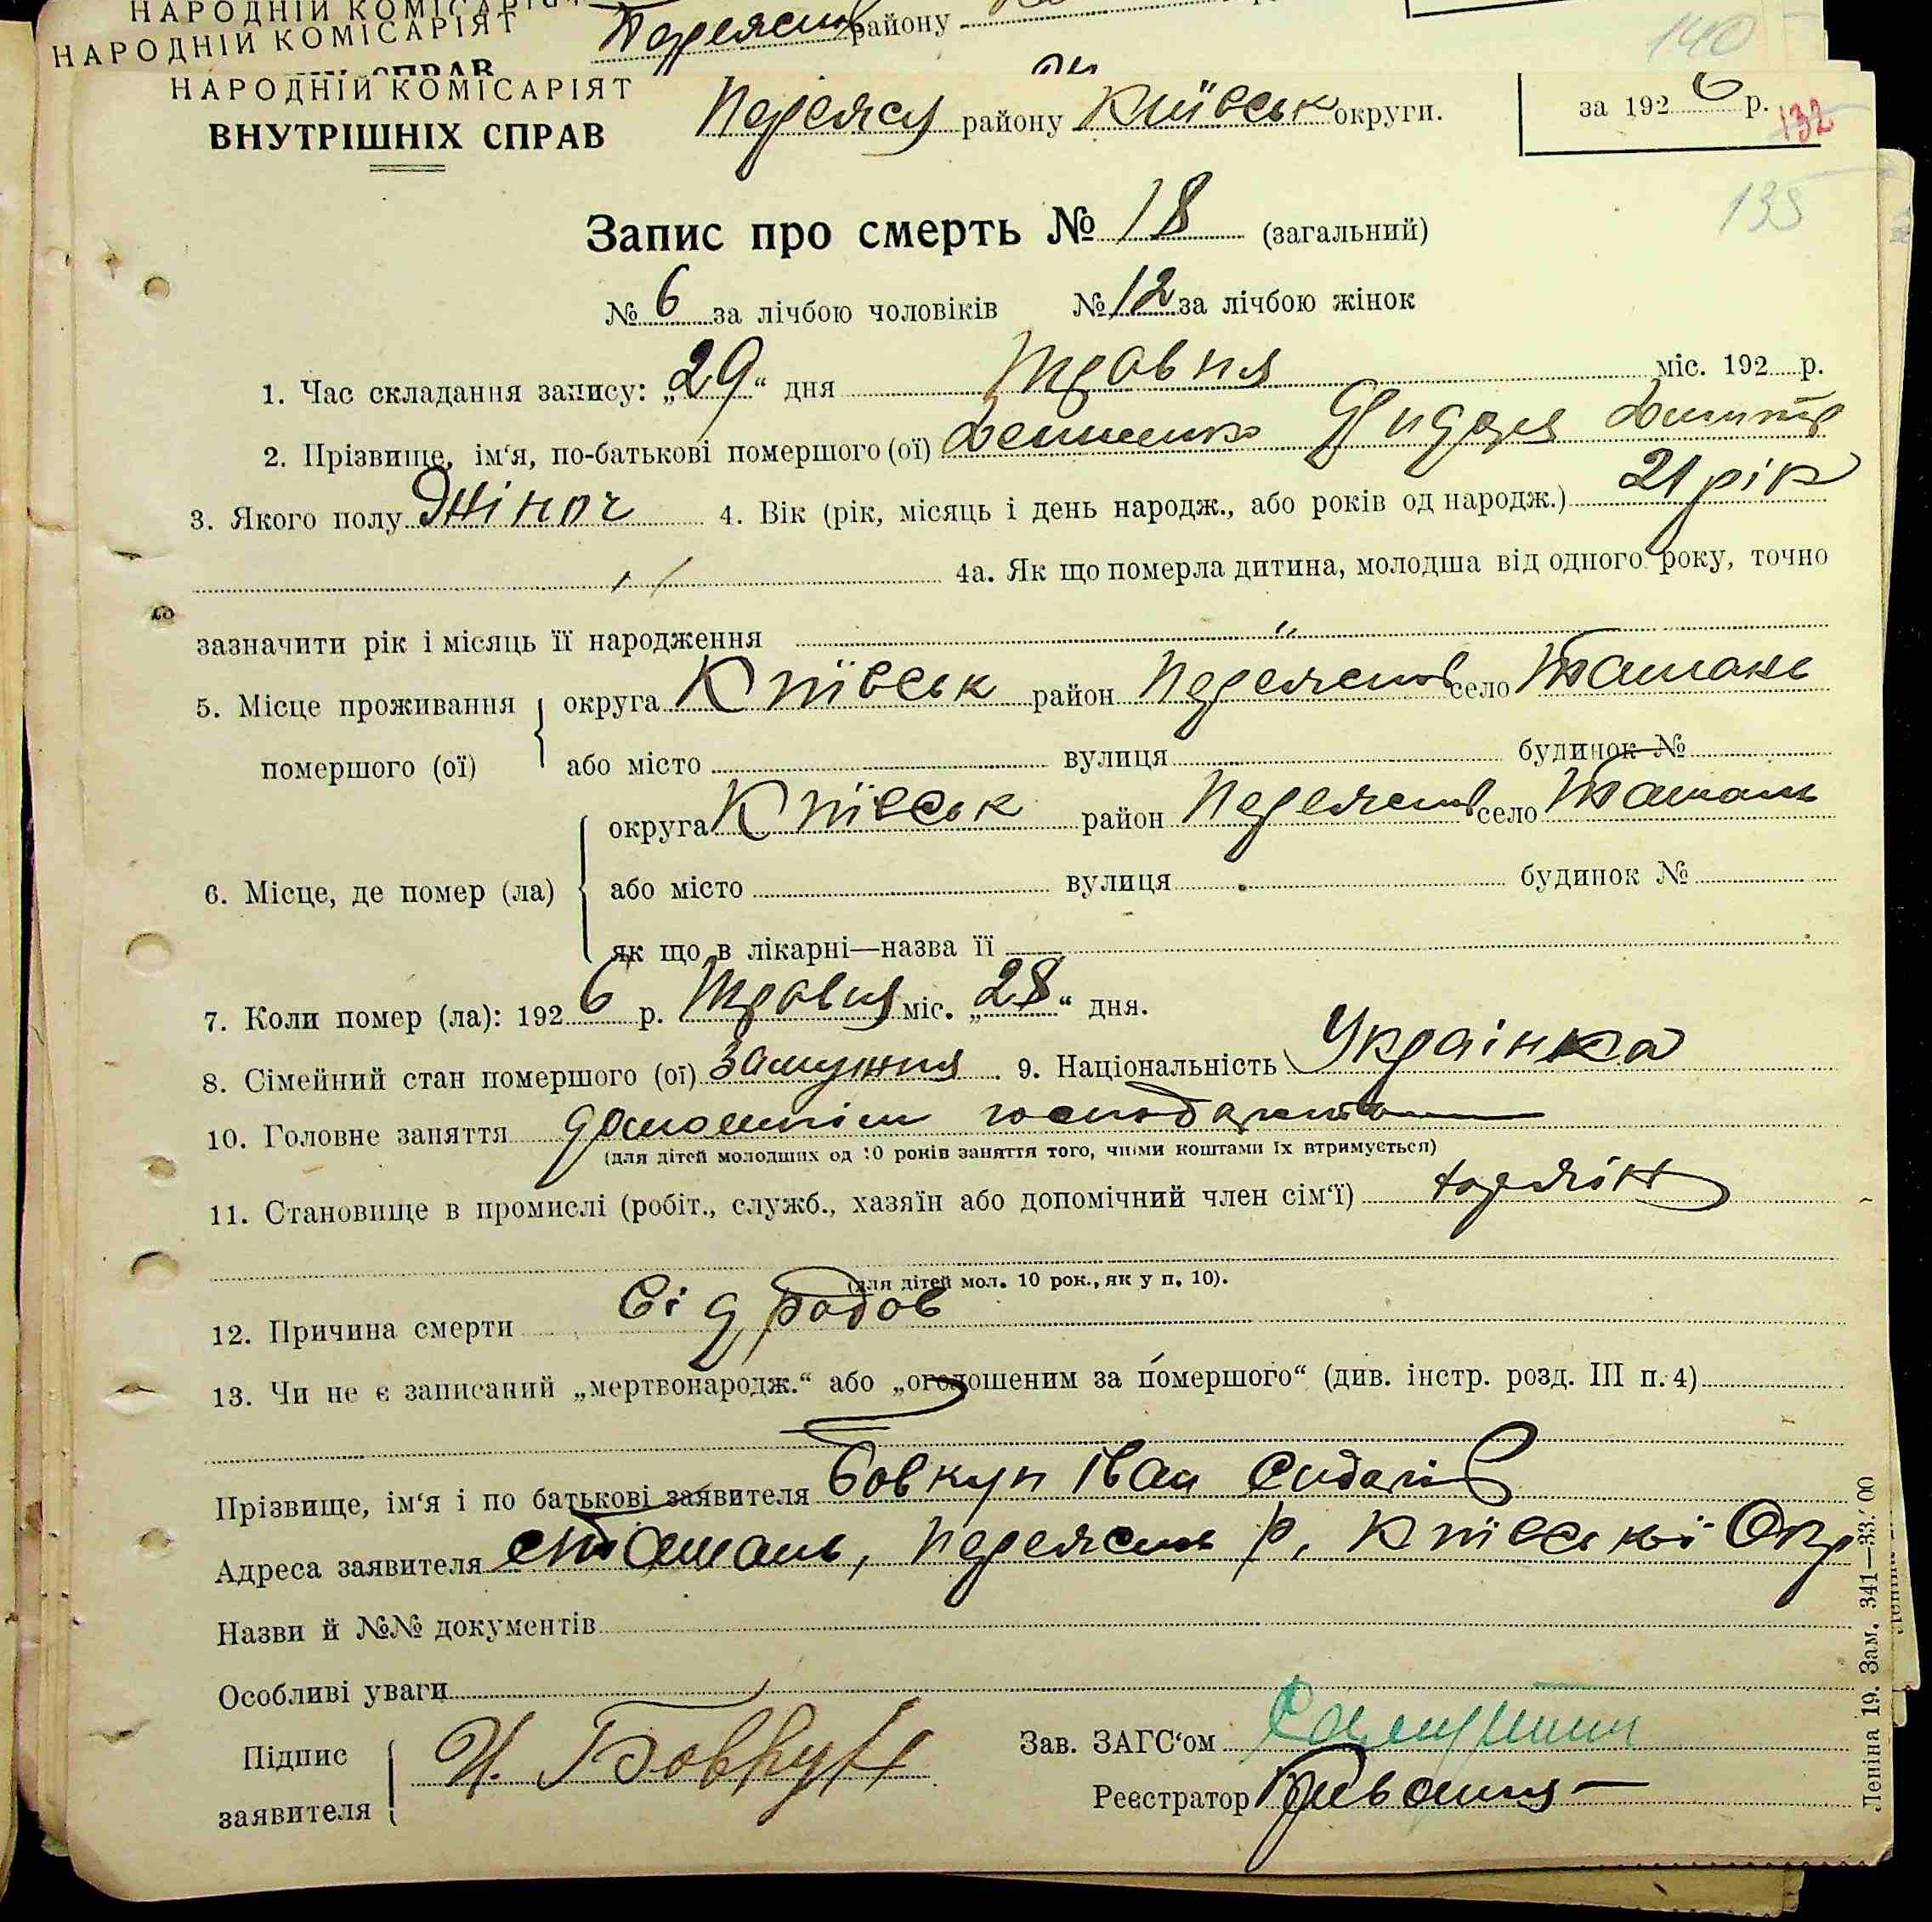 НАРОДНІЙ КОМІСАРІЯТ
НАРОДНІЙ КОМІСАРІЯТ
району
140
НАРОДНІЙ КОМІСАРІЯТ
ВНУТРІШНІХ СПРАВ
Переясл району Київськ округи.
за 1926 р.
132
135
Запис про смерть № 18 (загальний)
№ 6 за лічбою чоловіків № 12 за лічбою жінок
1. Час складання запису: „29“ дня Травня міс. 192 р.
2. Прізвище, ім‘я, по-батькові помершого (ої)
3. Якого полу Жіноч 4. Вік (рік, місяць і день народж., або років од народж.) 21 рік
4а. Як що померла дитина, молодша від одного року, точно
зазначити рік і місяць її народження "
5. Місце проживання помершого (ої) округа Київськ район Переяслов село Ташань
або місто вулиця будинок №
6. Місце, де помер (ла) округа Київськ район Переяслов село Ташань
або місто вулиця будинок №
як що в лікарні—назва її
7. Коли помер (ла): 1926 р. Травня міс. „28“ дня.
8. Сімейний стан помершого (ої) замужня 9. Національність Українка
10. Головне заняття
(для дітей молодших од 10 років заняття того, чиїми коштами їх втримується)
11. Становище в промислі (робіт., служб., хазяїн або допомічний член сім‘ї)
(для дітей мол. 10 рок., як у п. 10).
12. Причина смерти Від родов
13. Чи не є записаний „мертвонародж.“ або „оголошеним за помершого“ (див. інстр. розд. III п. 4)
Прізвище, ім‘я і по батькові заявителя Бовкун Іван
Адреса заявителя с Ташань, Переяслов р, Київської Окр
Назви й №№ документів
Особливі уваги
Підпис заявителя И. Бовкун
Зав. ЗАГС‘ом
Реєстратор
Леніна 19. Зам. 341—33.